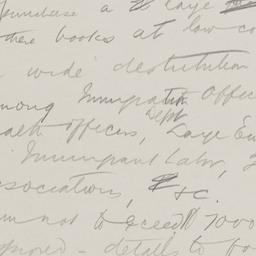 purchase a large
these books at low co
wide distribution
mong Immigration Offic
Dept
ealth officers, Large Em
Immigrant Labor,
ssociations, &c.
um not to exceed 7000
pproved - details to fo